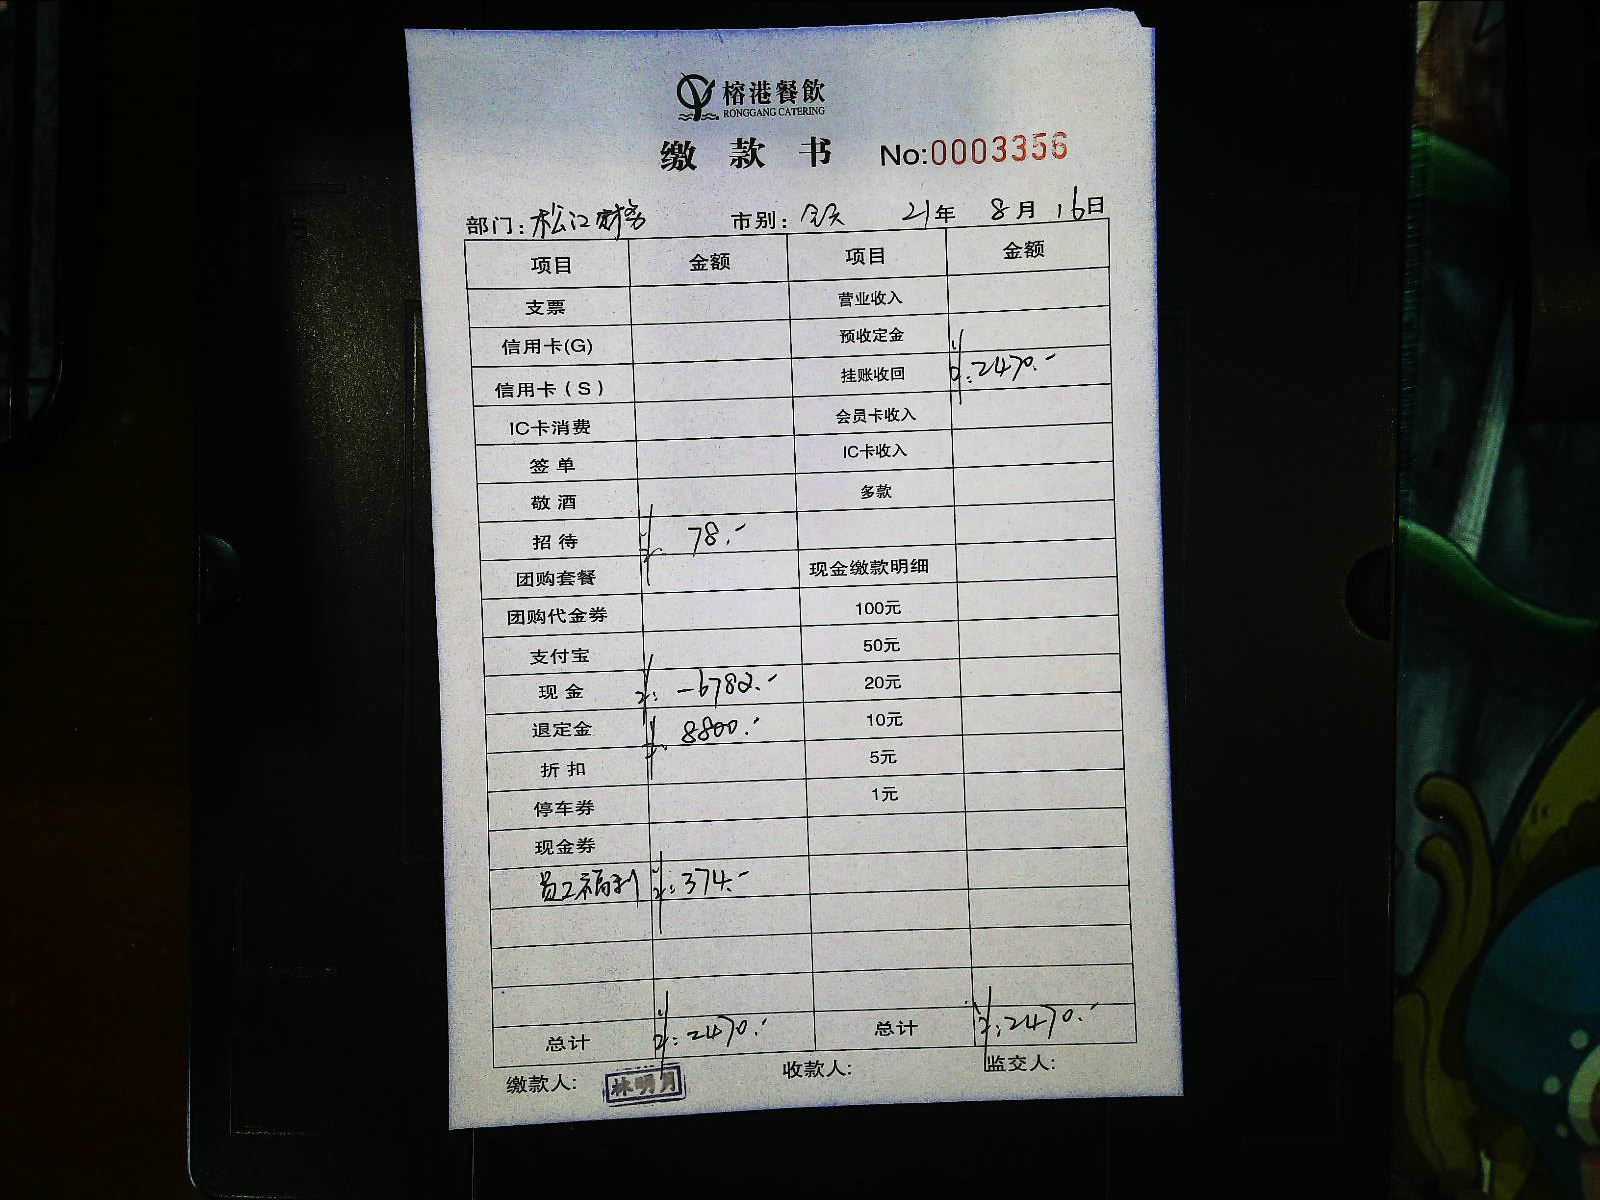 榕港餐飲
RONGGANG CATERING
缴款书 No:0003356
部门: 松江财务 市别: 全天 21年 8月 16日
项目 金额 项目 金额
支票 营业收入
信用卡(G) 预收定金
信用卡(S) 挂账收回 ¥:2470.-
IC卡消费 会员卡收入
签单 IC卡收入
敬酒 多款
招待 ¥ 78.-
团购套餐 现金缴款明细
团购代金券 100元
支付宝 50元
现金 ¥: -6782.- 20元
退定金 ¥. 8800.- 10元
折扣 5元
停车券 1元
现金券
员工福利 ¥:374.-
总计 ¥:2470.- 总计 ¥:2470.-
缴款人: 林明月 收款人: 监交人: